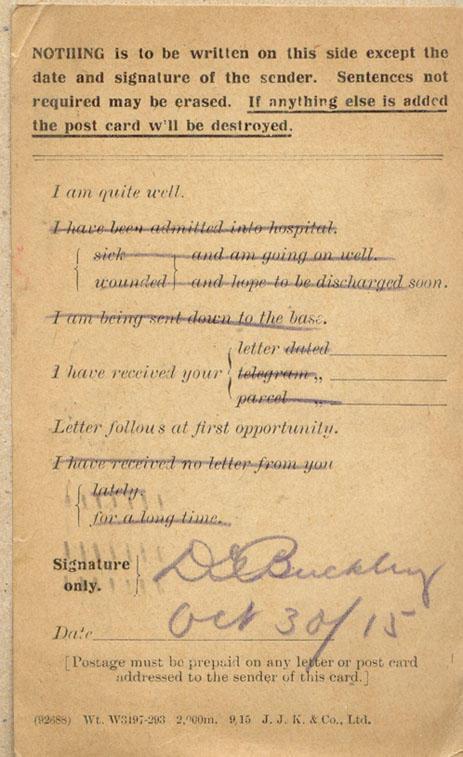 NOTHING is to be written on this side except the
date and signature of the sender. Sentences not
required may be erased. If anything else is added
the post card w'll be destroyed.
I am quite well.
I have been admitted into hospital.
sick and am going on well.
wounded and hope to be discharged soon.
I am being sent down to the base.
letter dated
I have received your telegram „
parcel „
Letter follows at first opportunity.
I have received no letter from you
lately
for a long time.
Signature
only.
D G Buckley
Date Oct 30/15
[Postage must be prepaid on any letter or post card
addressed to the sender of this card.]
(92688) Wt. W3497-293 2,000m. 9/15 J. J. K. & Co., Ltd.